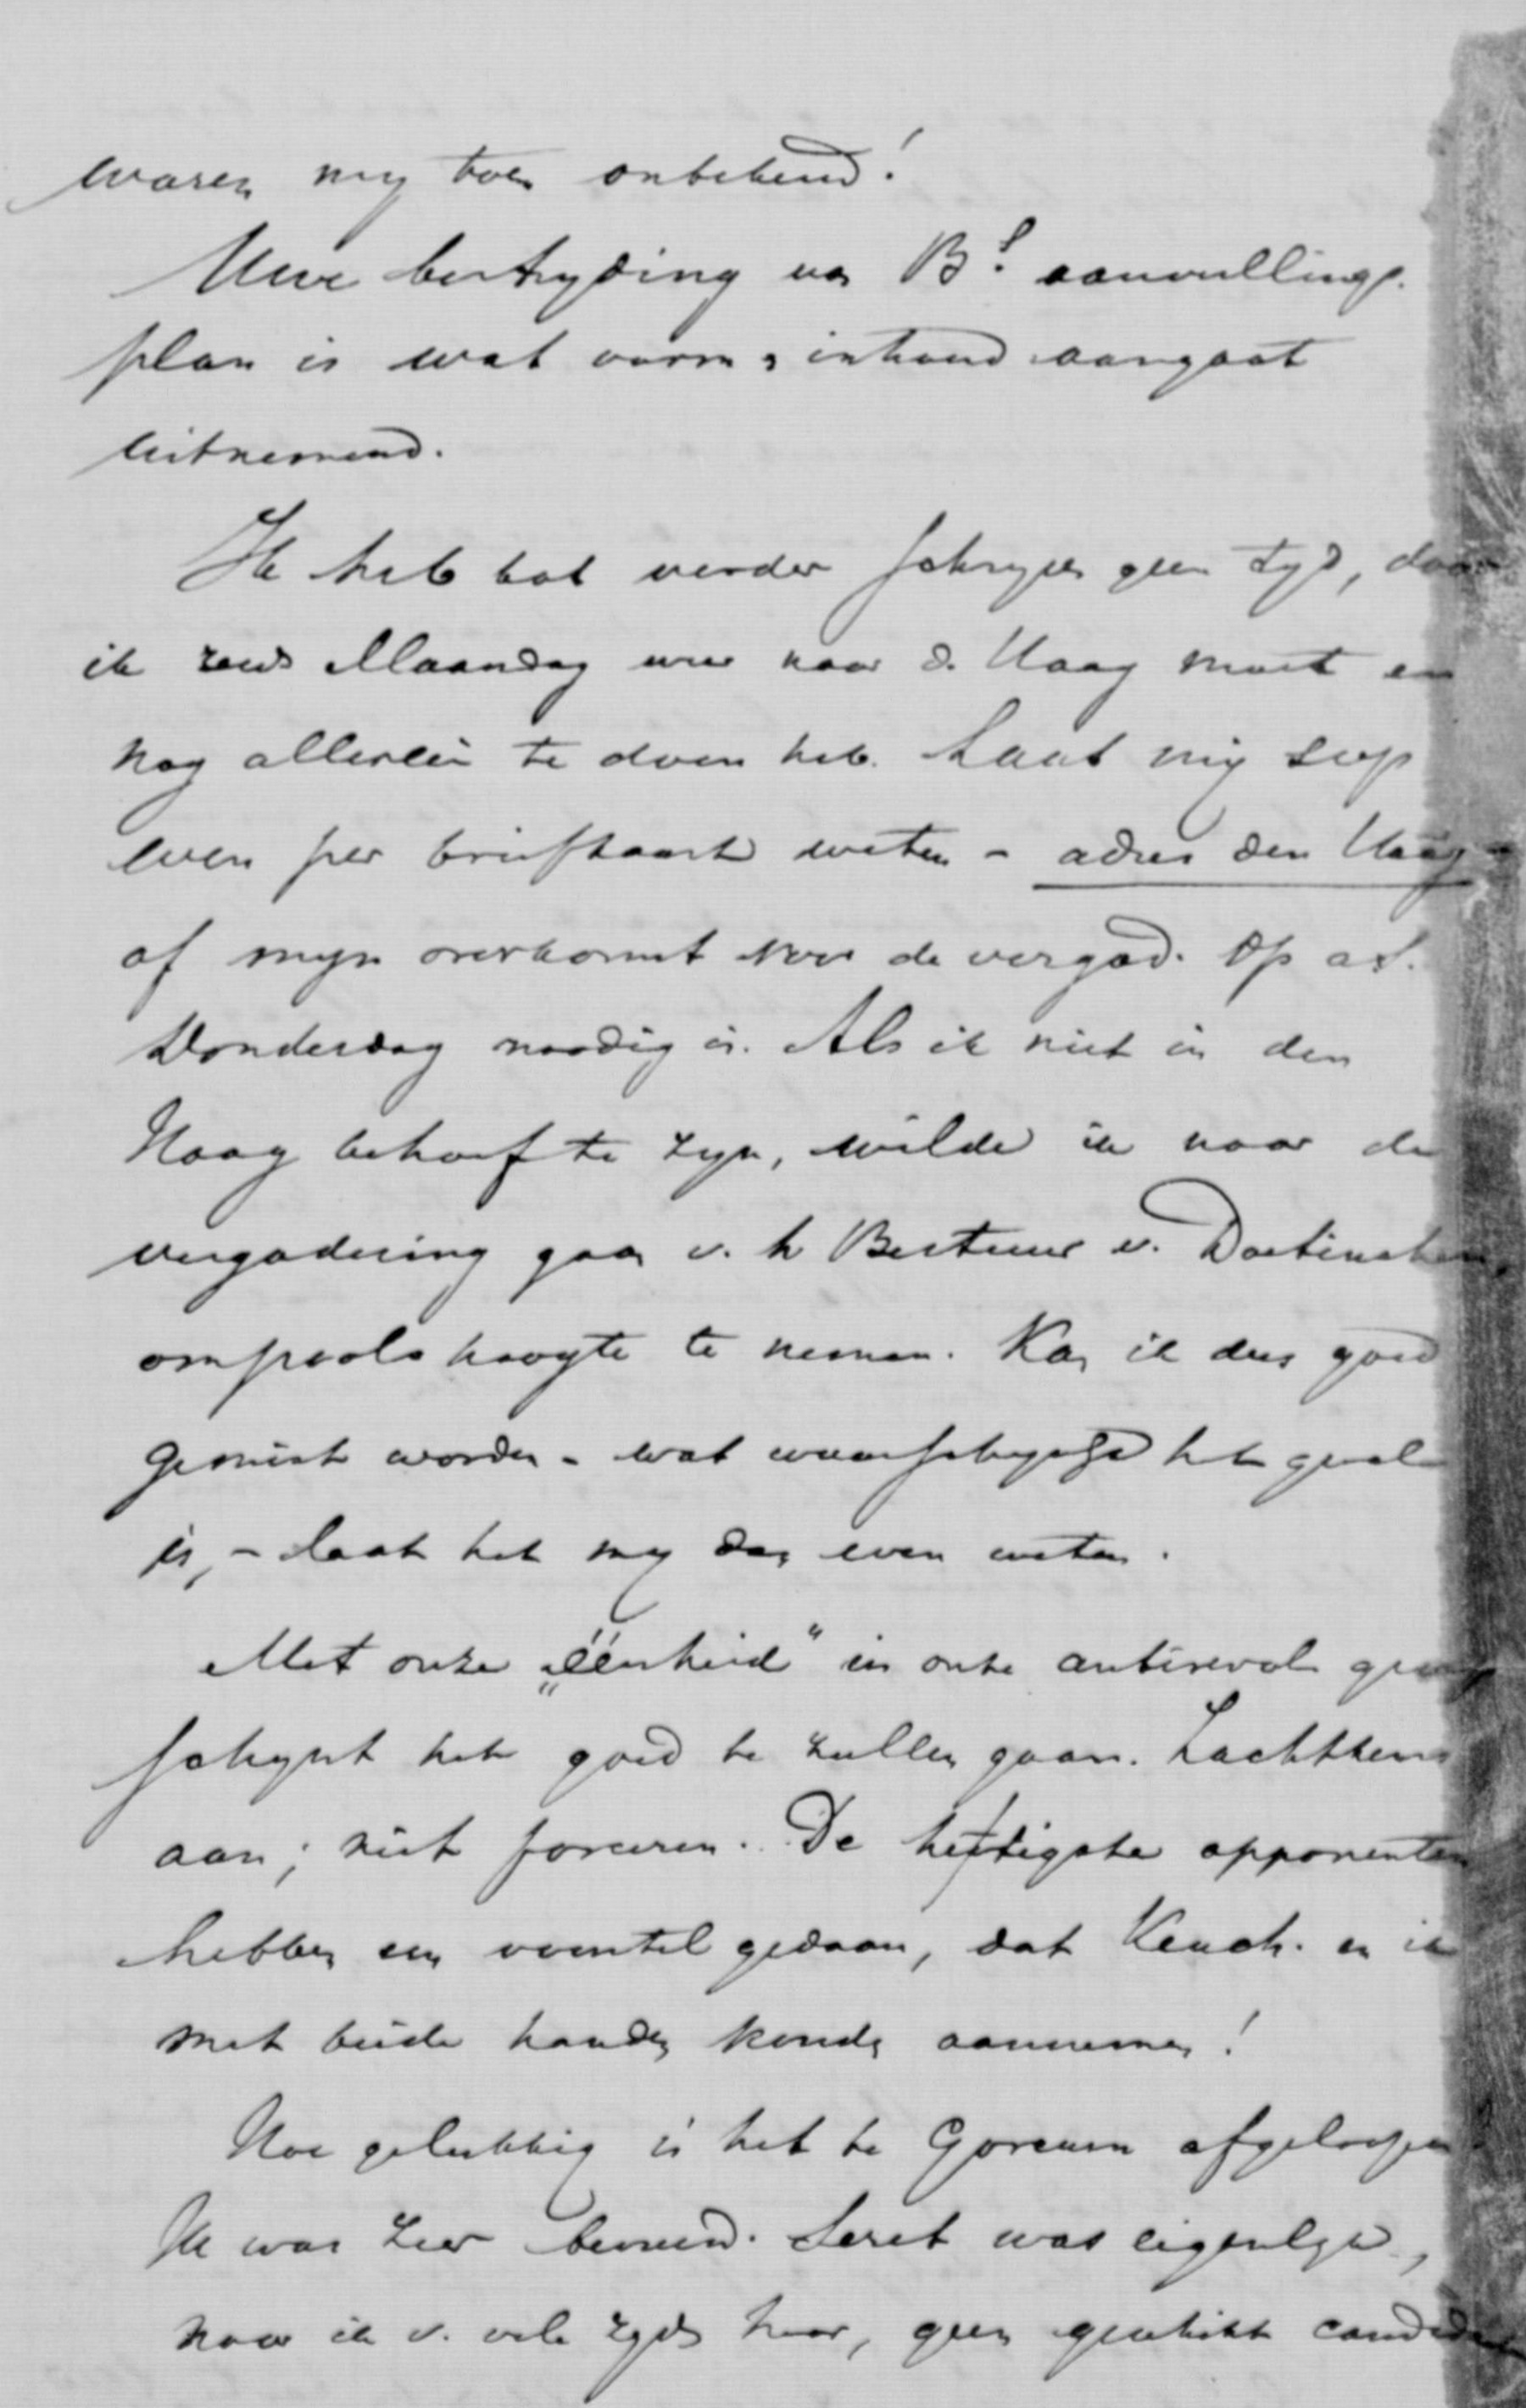 waren mij toen onbekend!
Uwe bestrijding van B.s aanvullings-
plan is wat vorm & inhoud aangaat
uitnemend.
Ik heb tot verder schrijven geen tijd, daar
ik reeds Maandag weer naar d. Haag moet en
nog allerlei te doen heb. Laat mij svp
even per briefkaart weten - adres den Haag -
of mijn overkomst voor de vergad. op a.s.
Donderdag noodig is. Als ik niet in den
Haag behoef te zijn, wilde ik naar de
vergadering gaan v. h Bestuur v. Doetinchem,
om poolshoogte te nemen. Kan ik dus goed
gemist worden - wat waarschijnlijk het geval
is, - laat het mij dan even weten.
Met onze „éénheid" in onze antirevol. groep
schijnt het goed te zullen gaan. Zachtkens
aan; niet forceeren. De heftigste opponenten
hebben een voorstel gedaan, dat Keuch. en ik
met beide handen konden aannemen!
Hoe gelukkig is het te Gorcum afgeloopen
Ik was zeer benieuwd. Seret was eigenlijk,
naar ik v. vele zijden hoor, geen geschikt candidaat